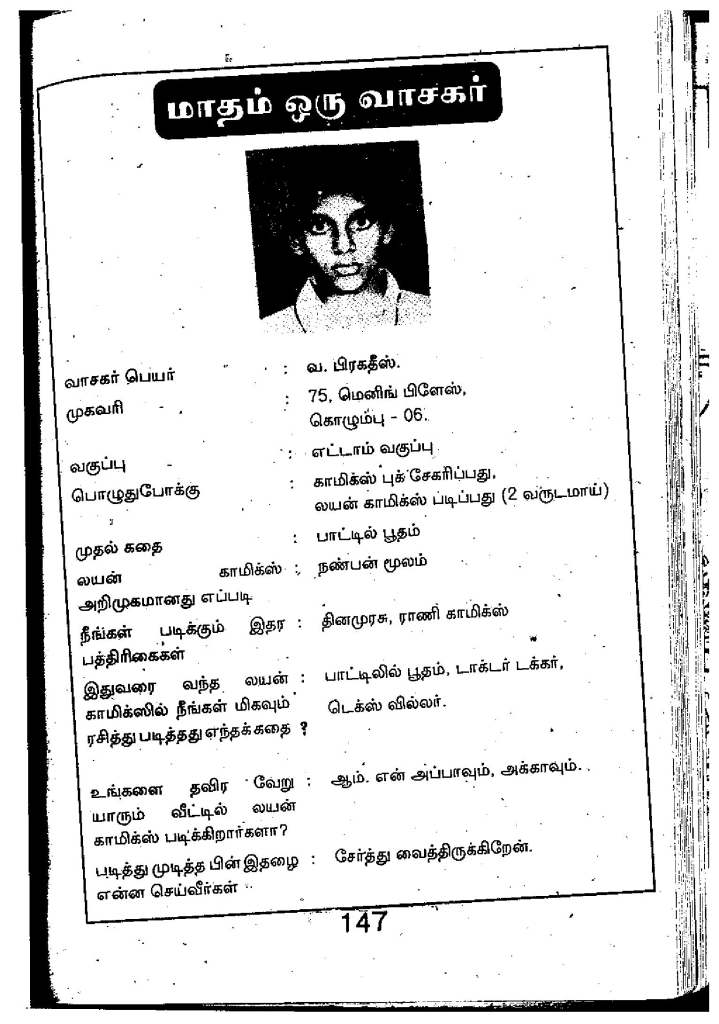 மாதம் ஒரு வாசகர்
வாசகர் பெயர் : வ. பிரகதீஸ்.
முகவரி - : 75, மெனிங் பிளேஸ்,
கொழும்பு - 06.
வகுப்பு - : எட்டாம் வகுப்பு
பொழுதுபோக்கு : காமிக்ஸ் புக் சேகரிப்பது,
லயன் காமிக்ஸ் படிப்பது (2 வருடமாய்)
முதல் கதை : பாட்டில் பூதம்
லயன் காமிக்ஸ் : நண்பன் மூலம்
அறிமுகமானது எப்படி
நீங்கள் படிக்கும் இதர : தினமுரசு, ராணி காமிக்ஸ்
பத்திரிகைகள்
இதுவரை வந்த லயன் : பாட்டிலில் பூதம், டாக்டர் டக்கர்,
காமிக்ஸில் நீங்கள் மிகவும் டெக்ஸ் வில்லர்.
ரசித்து படித்தது எந்தக்கதை ?
உங்களை தவிர வேறு : ஆம். என் அப்பாவும், அக்காவும்.
யாரும் வீட்டில் லயன்
காமிக்ஸ் படிக்கிறார்களா?
படித்து முடித்த பின் இதழை : சேர்த்து வைத்திருக்கிறேன்.
என்ன செய்வீர்கள்
147